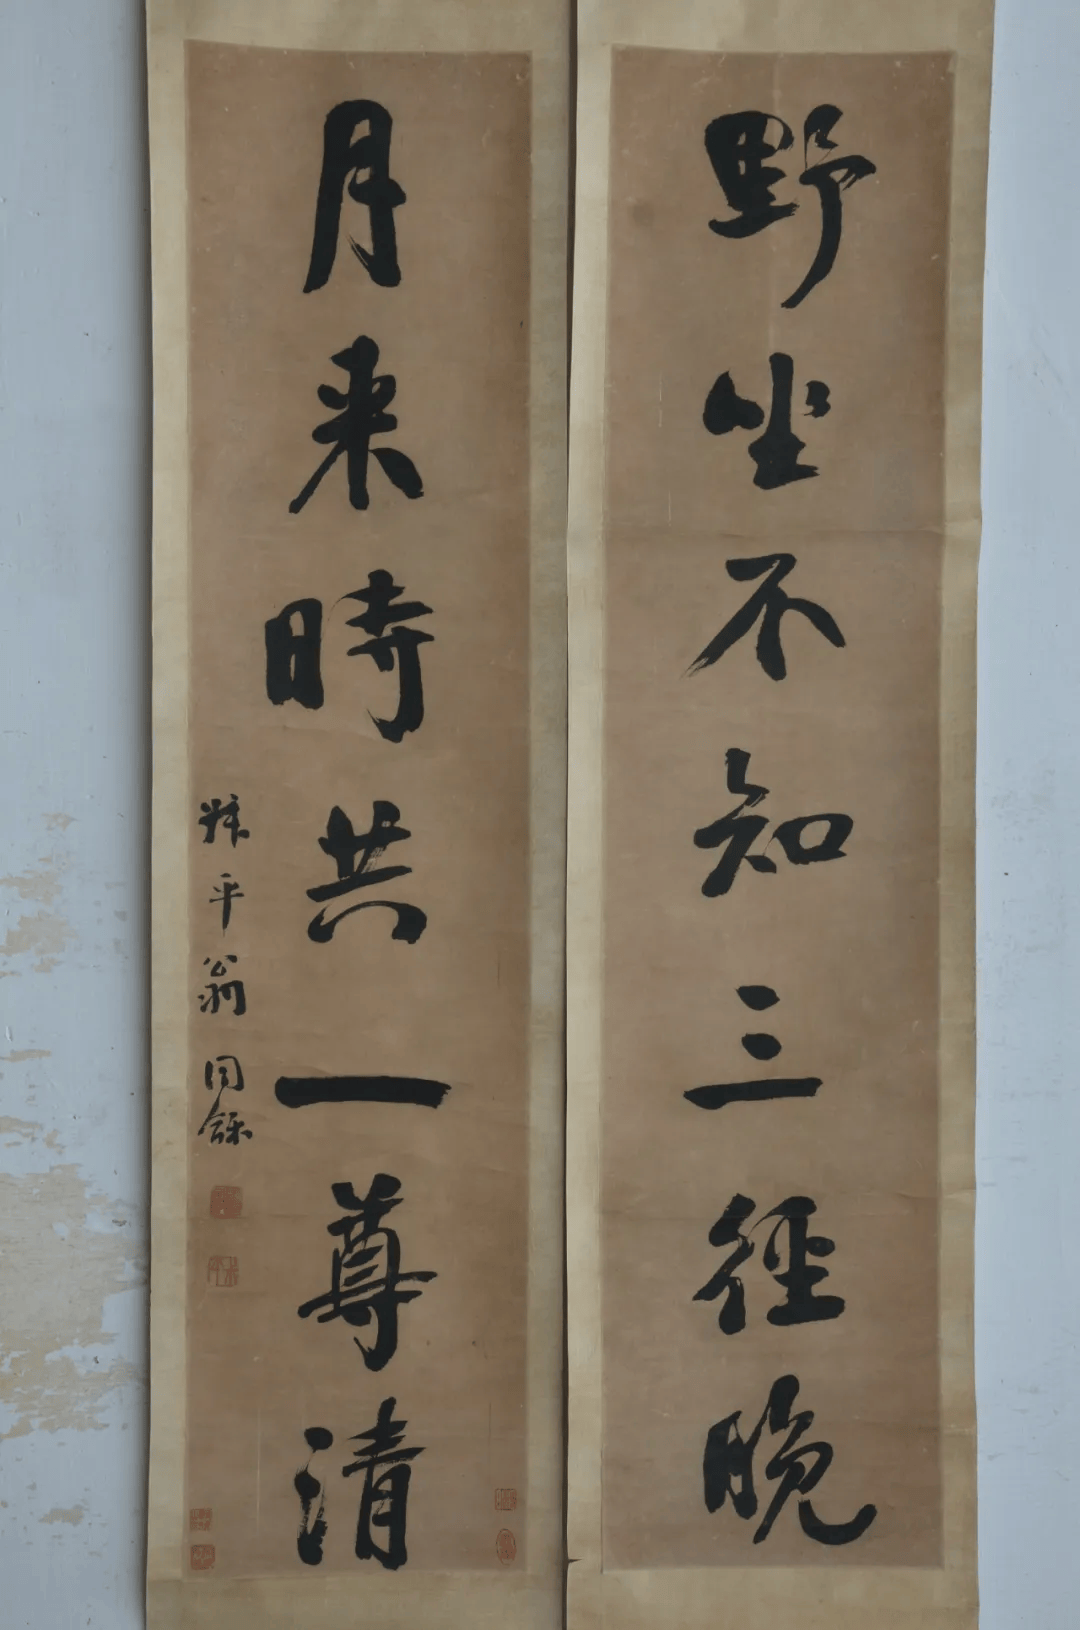 野坐不知三徑晚
月來時共一尊清
叔平翁同龢